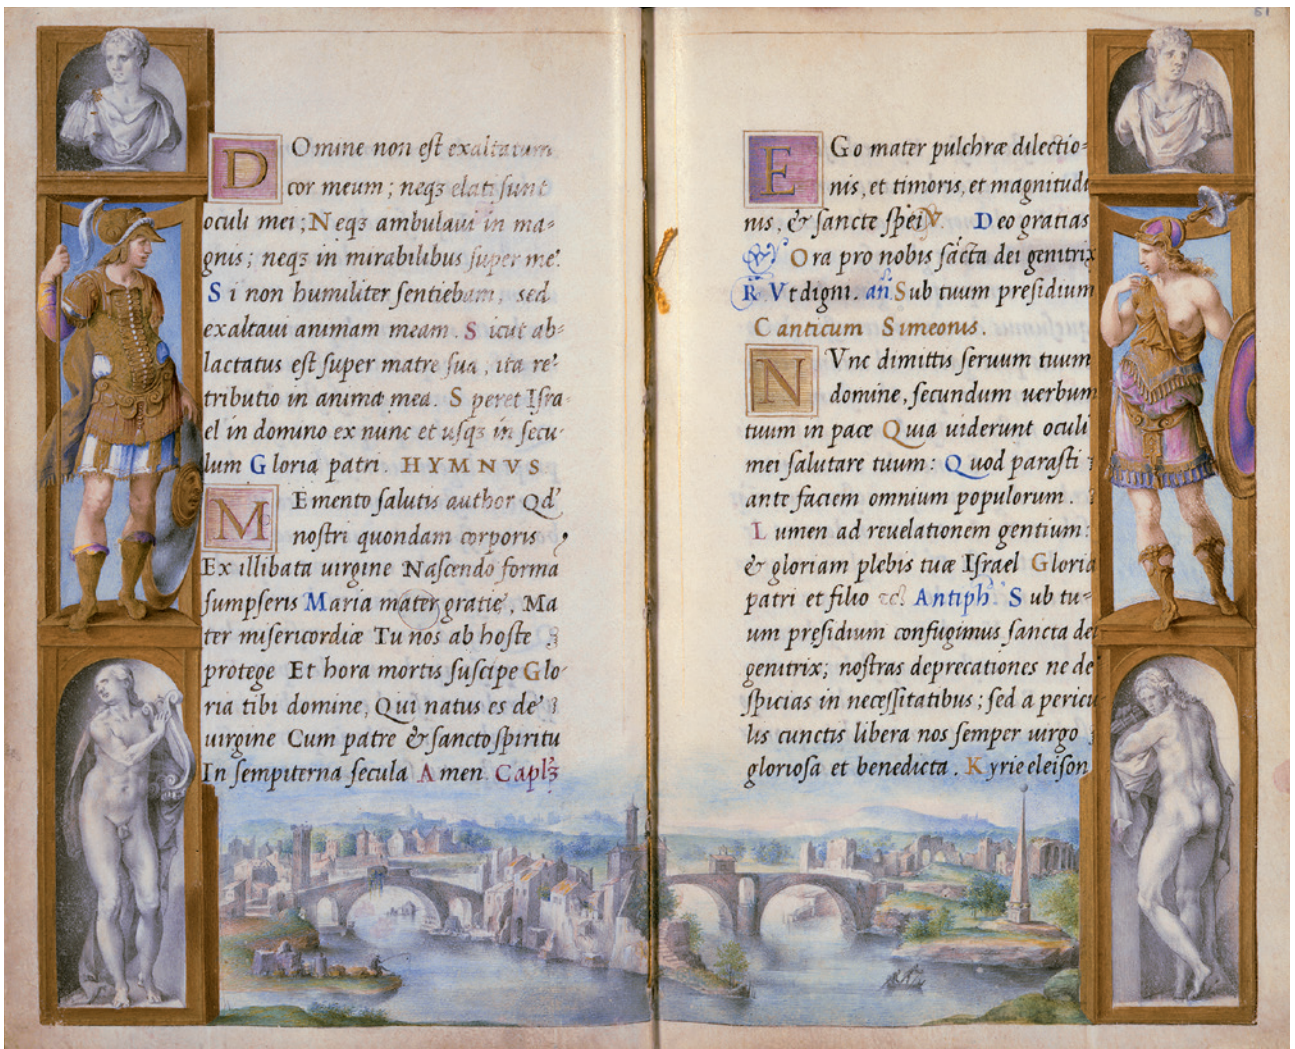 Domine non eſt exaltatum
cor meum ; neqȝ elati ſunt
oculi mei ; Neqȝ ambulaui in ma=
gnis ; neqȝ in mirabilibus ſuper me.
Si non humiliter ſentiebam, sed
exaltaui animam meam. Sicut ab=
lactatus eſt ſuper matre ſua, ita re=
tributio in anima mea. Speret Iſra=
el in domino ex nunc et uſqȝ in ſecu=
lum Gloria patri. HYMNVS
Memento ſalutis author Qd'
noſtri quondam corporis ,
Ex illibata uirgine Naſcendo forma
ſumpſeris Maria mater gratie, Ma
ter miſericordiæ Tu nos ab hoſte
protege Et hora mortis ſuſcipe Glo=
ria tibi domine, Qui natus es de'
uirgine Cum patre & ſancto ſpiritu
In ſempiterna ſecula Amen Caplȝ
51
Ego mater pulchræ dilectio=
nis, et timoris, et magnitudi
nis, & ſancte ſpei V. Deo gratias
Ora pro nobis ſācta dei genitrix
R Vt digni. añ Sub tuum preſidium
Canticum Simeonis.
Nvnc dimittis ſeruum tuum
domine, ſecundum uerbum
tuum in pace Quia uiderunt oculi
mei ſalutare tuum: Quod paraſti
ante faciem omnium populorum.
Lumen ad reuelationem gentium:
& gloriam plebis tuæ Iſrael Gloria
patri et filio Antiph. Sub tu=
um preſidium confugimus ſancta dei
genitrix; noſtras deprecationes ne de
ſpicias in neceſſitatibus; ſed a pericu
lis cunctis libera nos ſemper uirgo
glorioſa et benedicta. Kyrie eleiſon